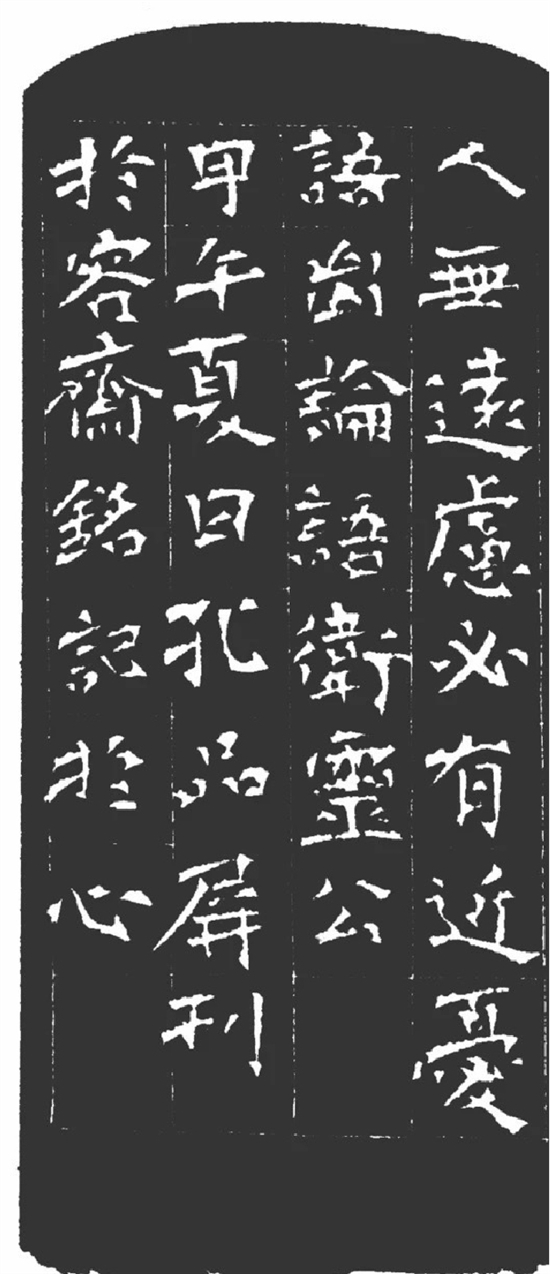 人無遠慮必有近憂
語出論語衛靈公
甲午夏日孔品屏刊
於容齋銘記於心